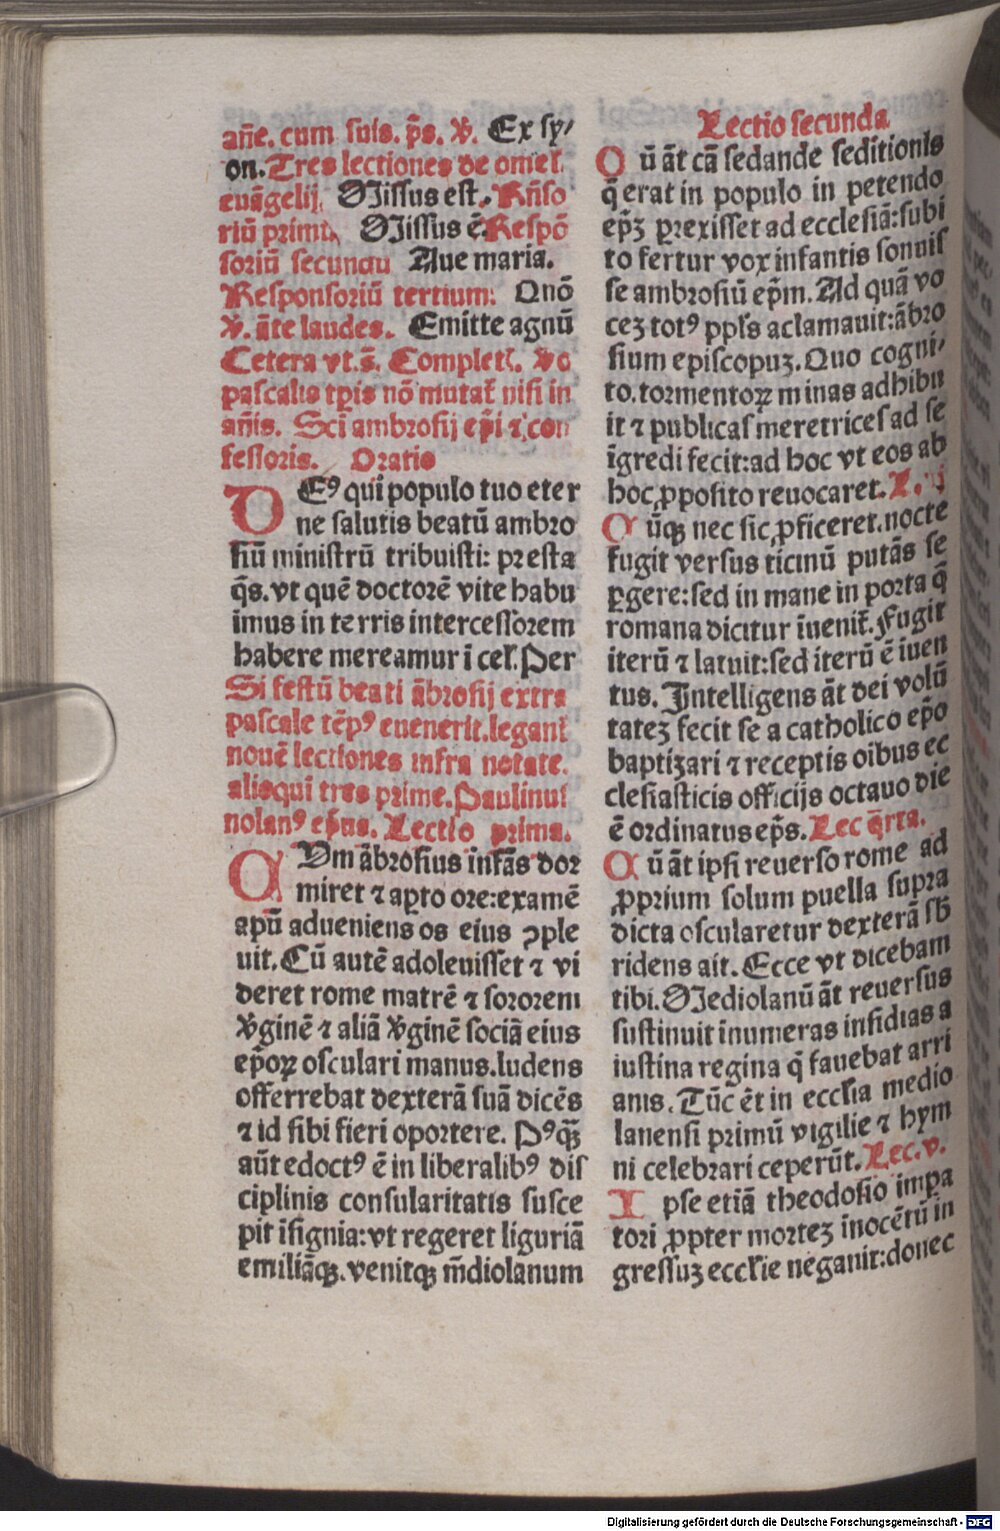 añe. cum suis. p̄s. ꝟ. Ex sy/
on. Tres lectiones de omeƚ.
euāgelij. Missus est. Rñso
riū primū. Missus ē. Respō
soriū secundū Aue maria.
Responsoriū tertium: Quō
ꝟ. āte laudes. Emitte agnū
Cetera vt.s̄. Completƚ.
pascalis tp̄is nō mutaƭ nisi in
añis. Scī ambrosij ep̄i ⁊ con
fessoris. Oratio
DEꝰ qui populo tuo eter
ne salutis beatū ambro
siū ministrū tribuisti: presta
q̄s. vt quē doctorē vite habu
imus in terris intercessorem
habere mereamur ī ceƚ. Per
Si festū beati ābrosij extra
pascale tēpꝰ euenerit. legant̄
nouē lectiones infra notate.
alioqui tres prime. Paulinus
nolanꝰ ep̄us. Lectio prima.
CUm ābrosius infās dor
miret ⁊ aꝑto ore: examē
apū adueniens os eius ꝯple
uit. Cū autē adoleuisset ⁊ vi
deret rome matrē ⁊ sororem
ꝟginē ⁊ aliā ꝟginē sociā eius
ep̄oꝝ osculari manus. ludens
offerrebat dexterā suā dicēs
⁊ id sibi fieri oportere. Pꝰqꝫ̄
aūt edoctꝰ ē in liberalibꝰ dis
ciplinis consularitatis susce
pit īsignia: vt regeret liguriā
emiliāqꝫ. venitqꝫ m̄diolanum
Lectio secunda
Cū āt cā sedande seditionis
q̄ erat in populo in petendo
ep̄ꝫ ꝑrexisset ad ecclesiā: subi
to fertur vox infantis sonuis
se ambrosiū ep̄m. Ad quā vo
ceꝫ totꝰ ppl̄s aclamauit: ābro
sium episcopuꝫ. Quo cogni/
to. tormentoꝝ minas adhibu
it ⁊ publicas meretrices ad se
īgredi fecit: ad hoc vt eos ab
hoc ꝓposito reuocaret. L.
Cūqꝫ nec sic ꝓficeret. nocte
fugit versus ticinū putās se
ꝑgere: sed in mane in porta q̄
romana dicitur īueniƭ. Fugit
iterū ⁊ latuit: sed iterū ē iuen
tus. Intelligens āt dei volū
tateꝫ fecit se a catholico ep̄o
baptiꝫari ⁊ receptis oībus ec
clesiasticis officijs octauo die
ē ordinatus ep̄s. Lec q̄rta.
Cū āt ipsi reuerso rome ad
ꝓprium solum puella supra
dicta oscularetur dexterā sb̄
ridens ait. Ecce vt dicebam
tibi. Mediolanū āt reuersus
sustinuit īnumeras insidias a
iustina regina q̄ fauebat arri
anis. Tūc ēt in eccƚia medio
lanensi primū vigilie ⁊ hym
ni celebrari ceperūt. Lec. v.
Ipse etiā theodosio impa
tori ꝓpter morteꝫ īnocētū in
gressuꝫ eccƚie negauit: donec
Digitalisierung gefördert durch die Deutsche Forschungsgemeinschaft - DFG